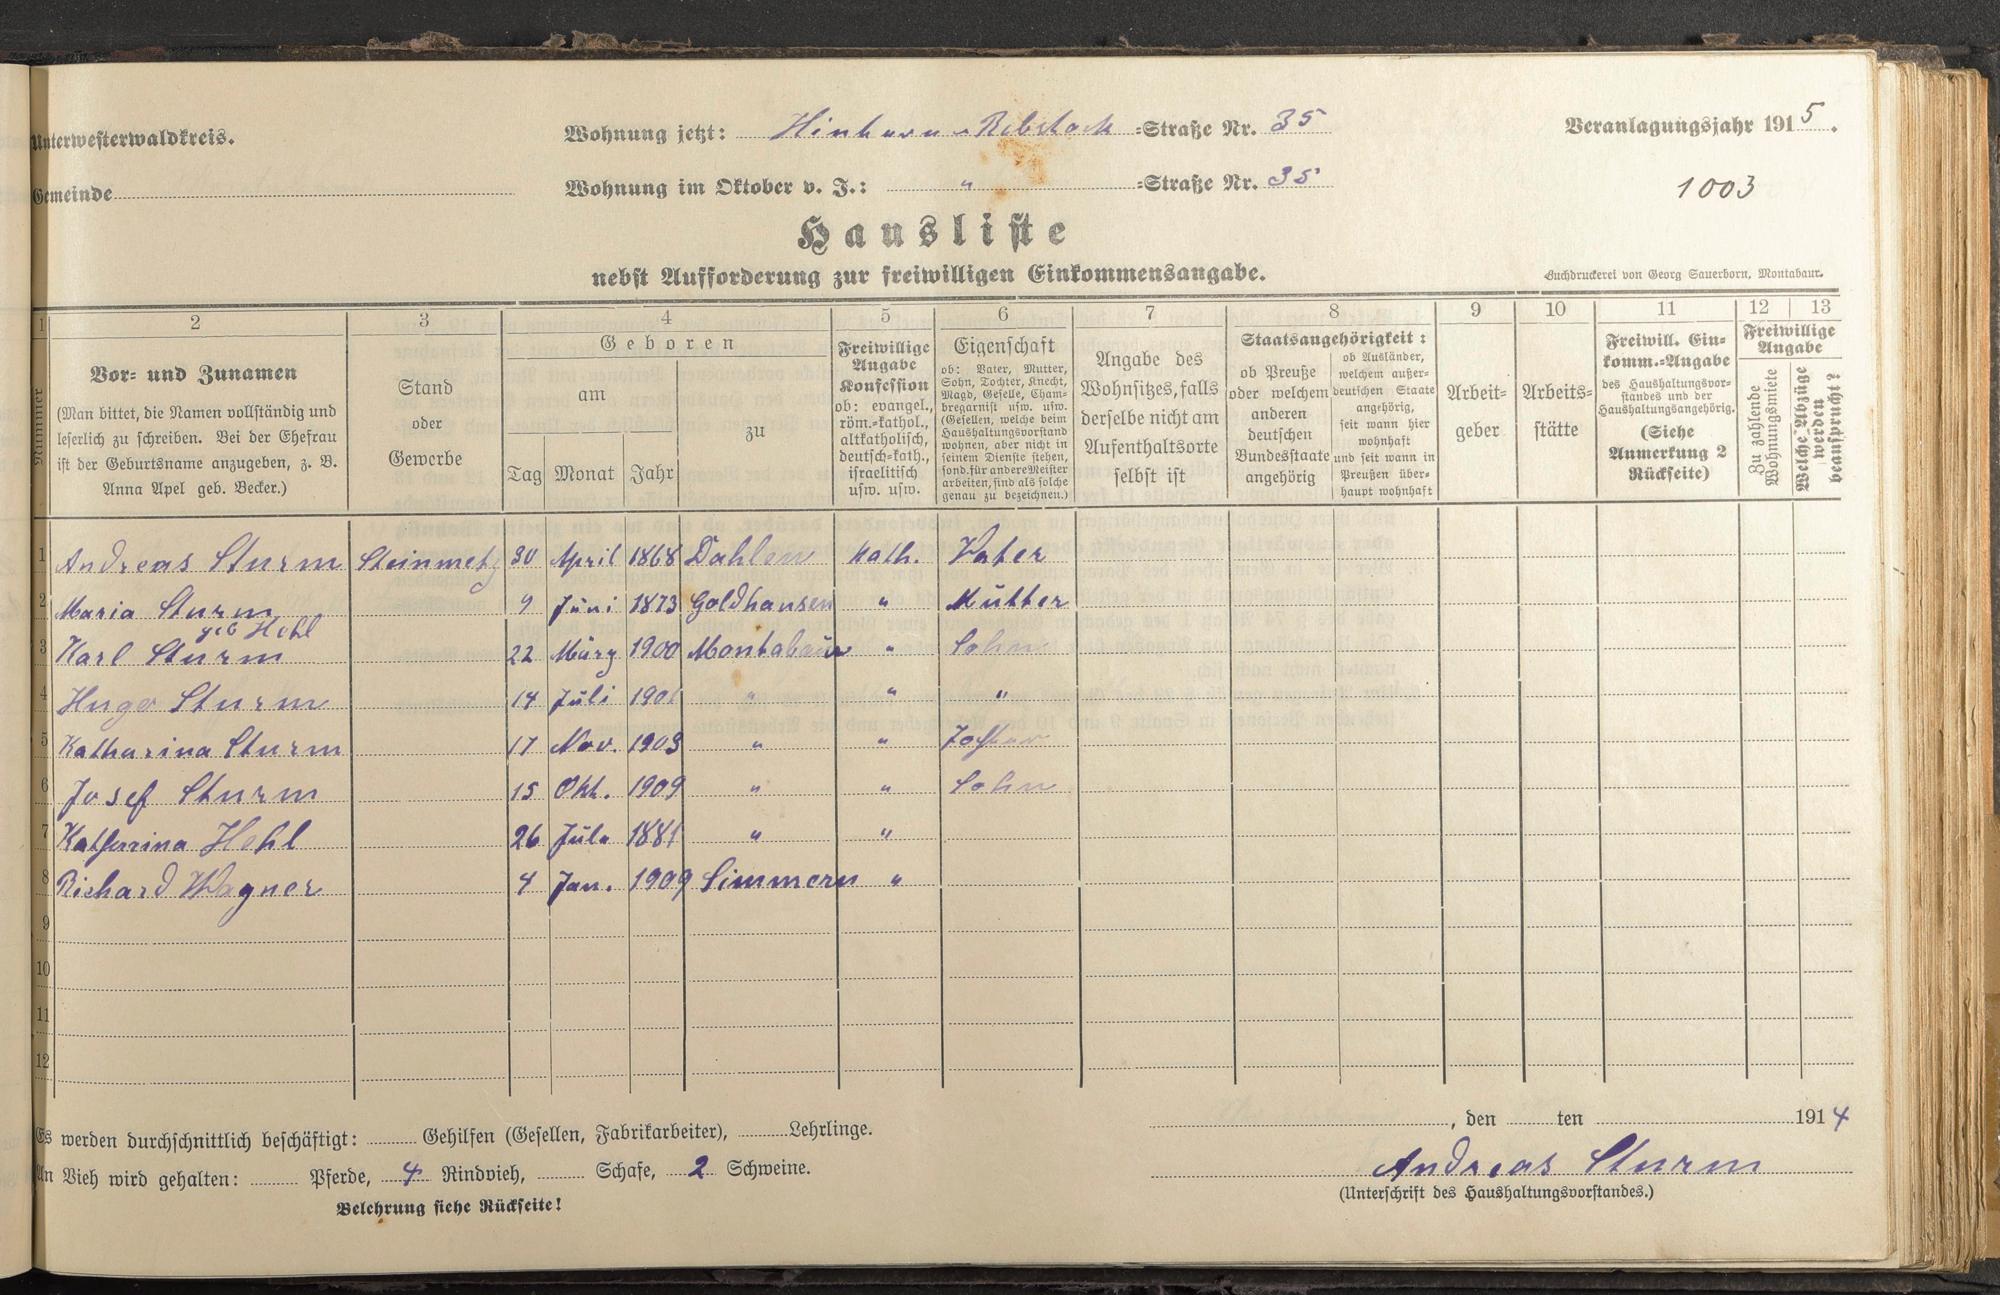 Unterwesterwaldkreis.
Wohnung jetzt: -Straße Nr. 35
Veranlagungsjahr 1915.
Gemeinde
Wohnung im Oktober v. J.: " -Straße Nr. 35
1003
Hausliste
nebst Aufforderung zur freiwilligen Einkommensangabe.
Buchdruckerei von Georg Sauerborn, Montabaur.
1 2 3 4 5 6 7 8 9 10 11 12 13
Nummer
Vor- und Zunamen
(Man bittet, die Namen vollständig und
leserlich zu schreiben. Bei der Ehefrau
ist der Geburtsname anzugeben, z. B.
Anna Apel geb. Becker.)
Stand
oder
Gewerbe
Geboren
am
Tag Monat Jahr
zu
Freiwillige
Angabe
Konfession
ob: evangel.,
röm.-kathol.,
altkatholisch,
deutsch-kath.,
israelitisch
usw. usw.
Eigenschaft
ob: Vater, Mutter,
Sohn, Tochter, Knecht,
Magd, Geselle, Cham-
bregarnist usw. usw.
(Gesellen, welche beim
Haushaltungsvorstand
wohnen, aber nicht in
seinem Dienste stehen,
sond. für andere Meister
arbeiten, sind als solche
genau zu bezeichnen.)
Angabe des
Wohnsitzes, falls
derselbe nicht am
Aufenthaltsorte
selbst ist
Staatsangehörigkeit:
ob Preuße
oder welchem
anderen
deutschen
Bundesstaate
angehörig
ob Ausländer,
welchem außer-
deutschen Staate
angehörig,
seit wann hier
wohnhaft
und seit wann in
Preußen über-
haupt wohnhaft
Arbeit-
geber
Arbeits-
stätte
Freiwill. Ein-
komm.-Angabe
des Haushaltungsvor-
standes und der
Haushaltungsangehörig.
(Siehe
Anmerkung 2
Rückseite)
Freiwillige
Angabe
Zu zahlende
Wohnungsmiete
Welche Abzüge
werden
beansprucht?
1 Andreas Sturm Steinmetz 30 April 1868 Dahlen kath. Vater
2 Maria Sturm 9 Juni 1873 Goldhausen " Mutter
geb Hehl
3 Karl Sturm 22 März 1900 Montabaur " Sohn
4 Hugo Sturm 14 Juli 1901 " " "
5 Katharina Sturm 17 Nov. 1903 " " Tochter
6 Josef Sturm 15 Okt. 1909 " " Sohn
7 Katharina Hehl 26 1881 " "
8 Richard Wagner 4 Jan. 1909 Simmern "
9
10
11
12
Es werden durchschnittlich beschäftigt: Gehilfen (Gesellen, Fabrikarbeiter), Lehrlinge.
, den ten 1914
An Vieh wird gehalten: Pferde, 4 Rindvieh, Schafe, 2 Schweine.
Andreas Sturm
(Unterschrift des Haushaltungsvorstandes.)
Belehrung siehe Rückseite!